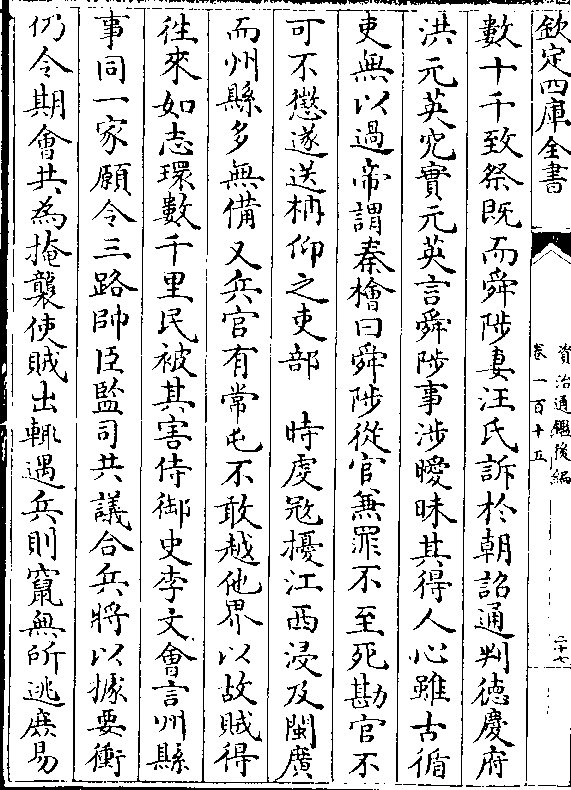 欽定四庫全書
資治通鑑後編
卷一百十五
二十七
數十千致祭既而舜陟妻汪氏訴於朝詔通判德慶府
洪元英究實元英言舜陟事涉曖昧其得人心雖古循
吏無以過帝謂秦檜曰舜陟從官無罪不至死勘官不
可不懲遂送柄仰之吏部　時虔冦擾江西浸及閩廣
而州縣多無備又兵官有常屯不敢越他界以故賊得
徃來如志環數千里民被其害侍御史李文會言州縣
事同一家願令三路帥臣監司共議合兵將以據要衝
仍令期會共為掩襲使賊出輒遇兵則竄無所逃庶易